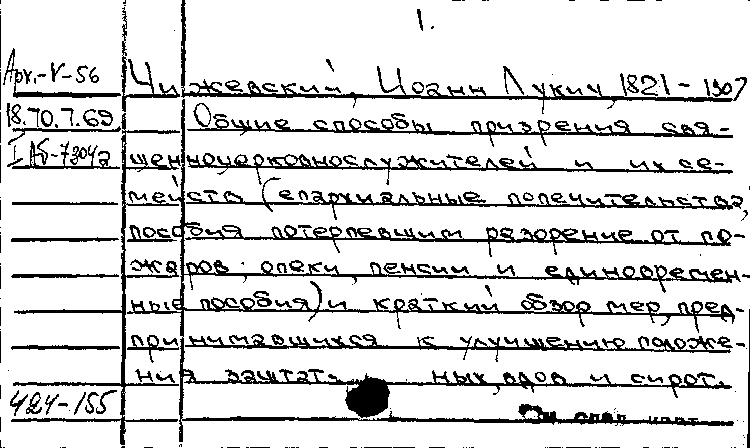 1.
Арх.-V-56
Чижевский, Иоанн Лукич, 1821-1907
18.70.7.69
Общие способы призрения свя-
I АБ-73042
щенноцерковнослужителей и их се-
мейств (епархиальные попечительства,
пособия потерпевшим разорение от по-
жаров; опеки, пенсии и единовремен-
ные пособия) и краткий обзор мер, пред-
принимавшихся к улучшению положе-
ния заштатных, вдов и сирот.
424-155
См след карт